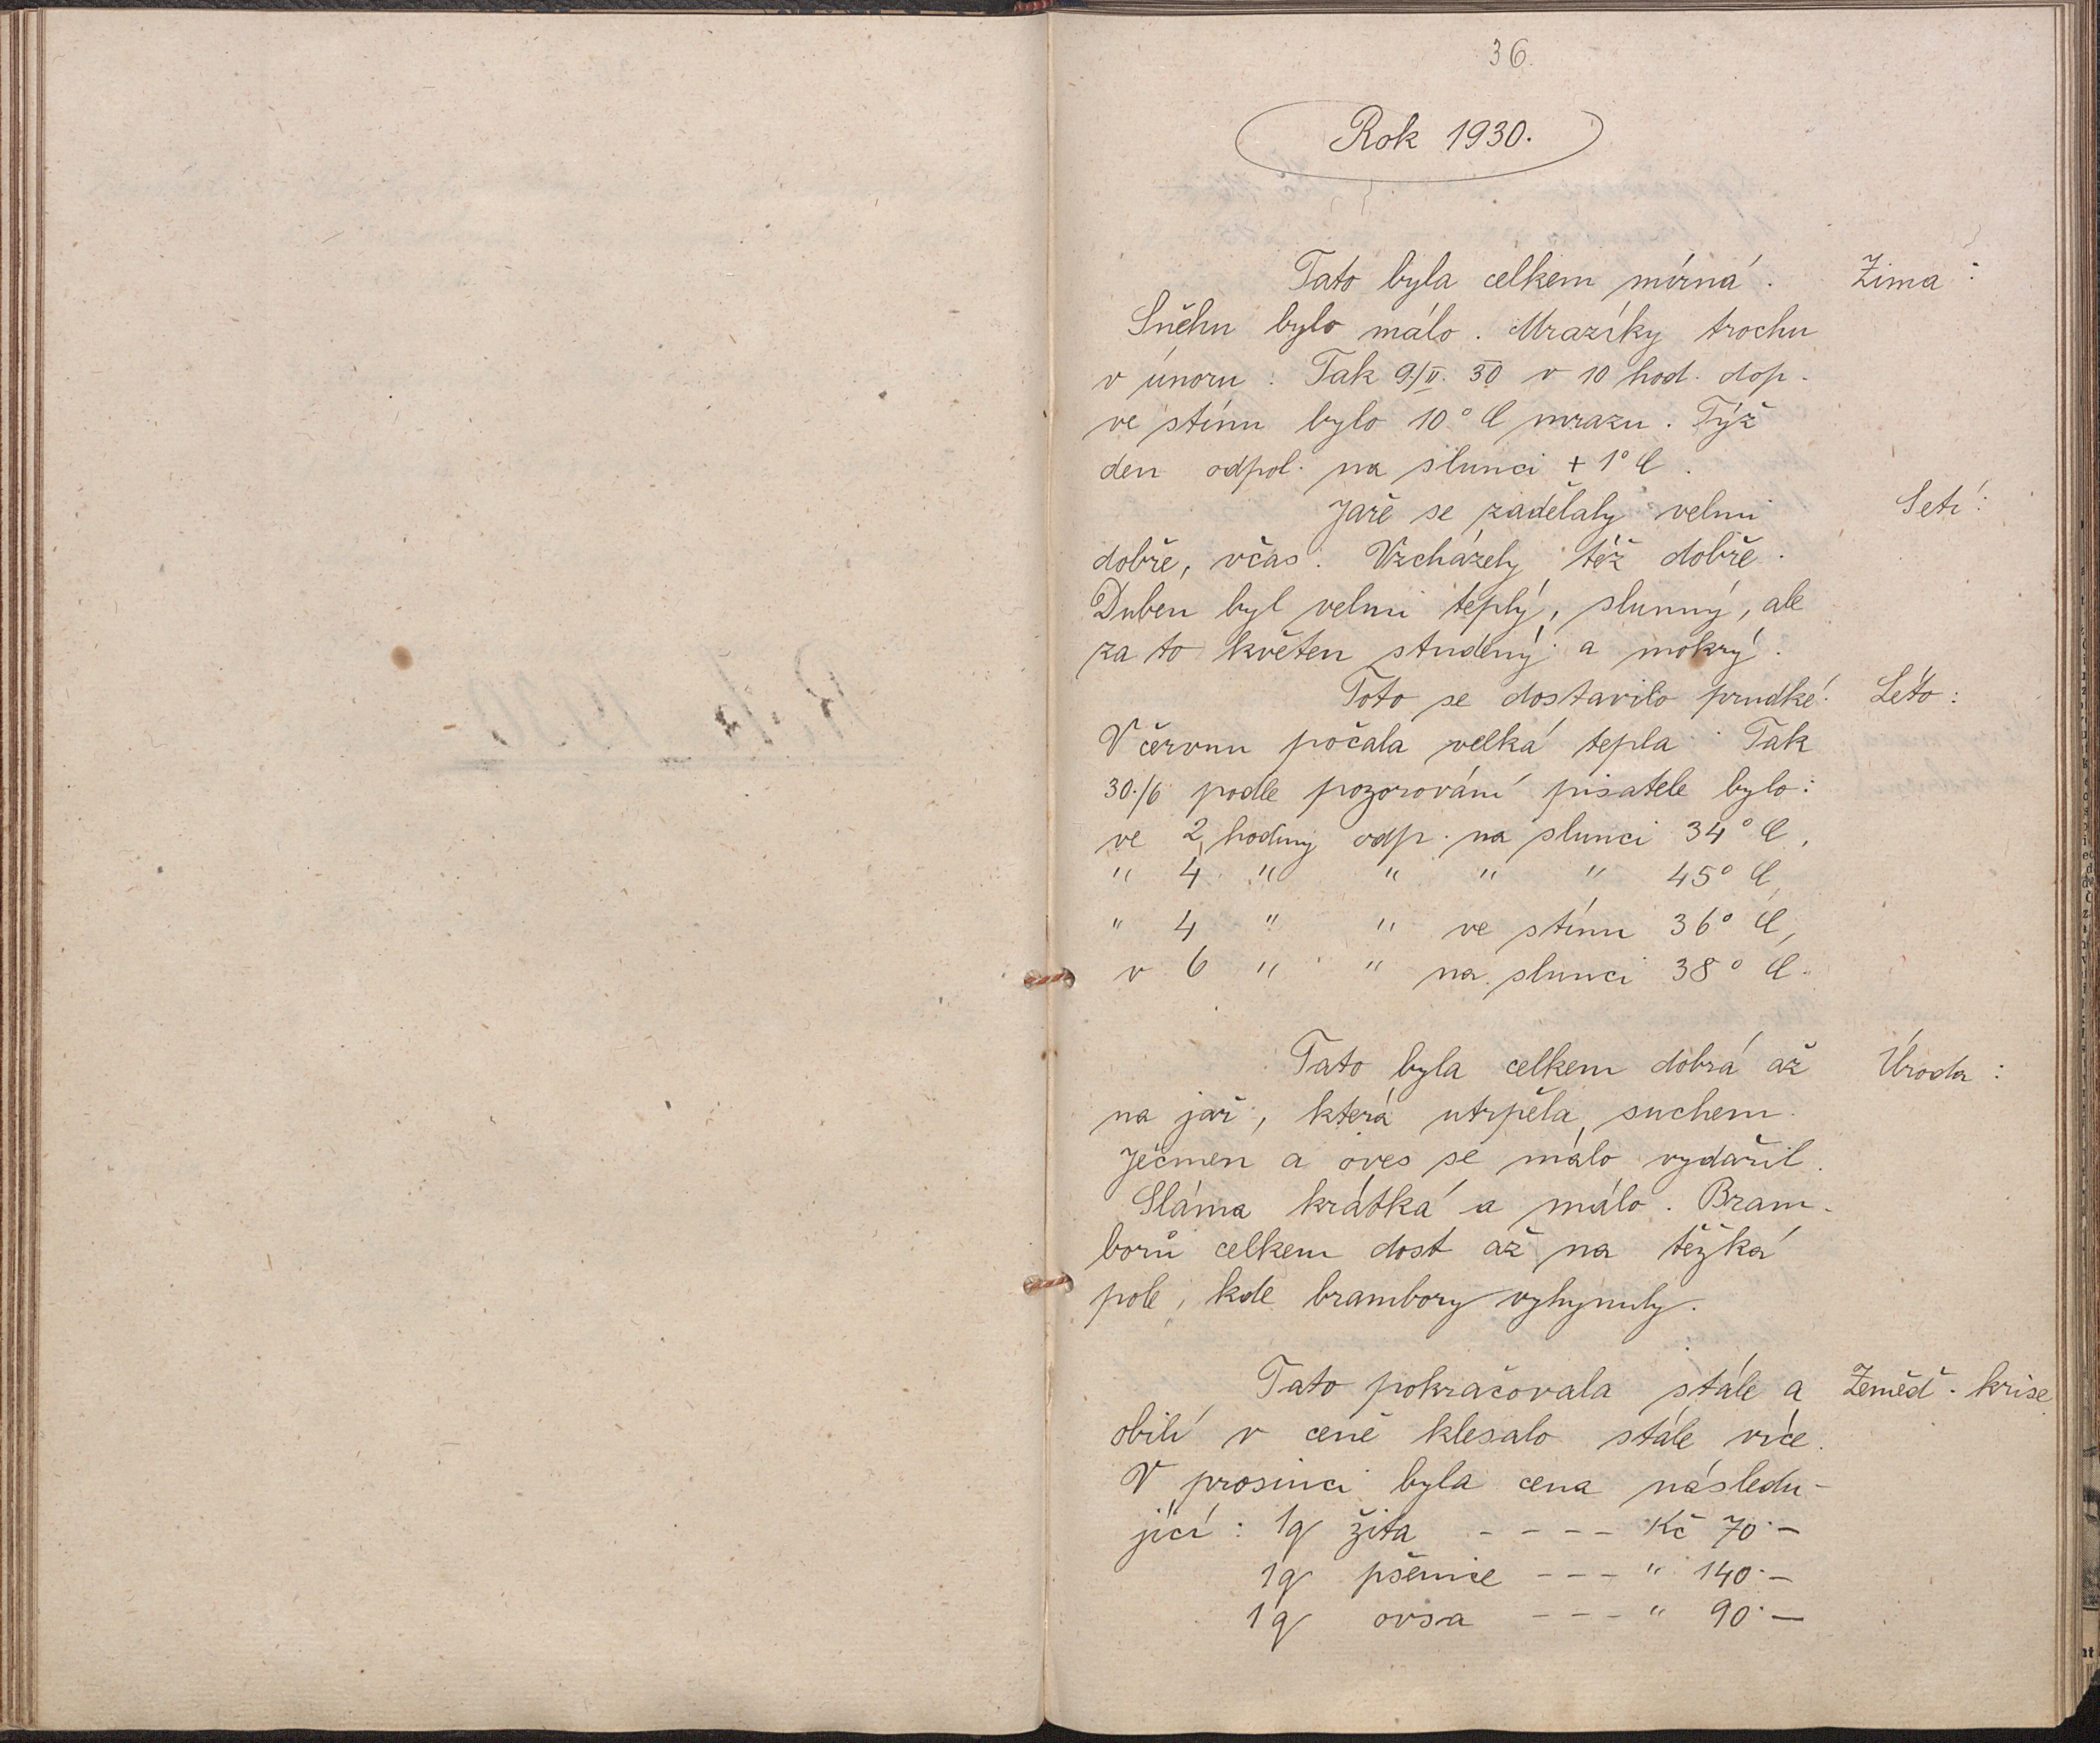 36.
Rok 1930.
Tato byla celkem mírná. Zima:
Sněhu bylo málo. Mrazíky trochu
v únoru. Tak 9./II. 30 v 10 hod. dop.
ve stínu bylo 10° C mrazu. Týž
den odpol. na slunci + 1° C.
Jaře se zadělaly velmi Setí:
dobře, včas. Vzcházely též dobře.
Duben byl velmi teplý, slunný, ale
za to květen studený a mokrý.
Toto se dostavilo prudké. Léto:
V červnu počala velká tepla. Tak
30./6 podle pozorování pisatele bylo:
ve 2 hodiny odp. na slunci 34° C,
" 4 " " " " 45° C,
" 4 " " ve stínu 36° C,
v 6 " " na slunci 38° C.
Tato byla celkem dobrá až Úroda:
na jař, která utrpěla suchem.
Ječmen a oves se málo vydařil.
Sláma krátká a málo. Bram-
borů celkem dost až na těžká
pole, kde brambory vyhynuly.
Tato pokračovala stále a Zeměď. krise
obilí v ceně klesalo stále více.
V prosinci byla cena následu-
jící: 1q žita - - - - Kč 70.—
1q pšenice - - - " 140.—
1q ovsa - - - " 90.—